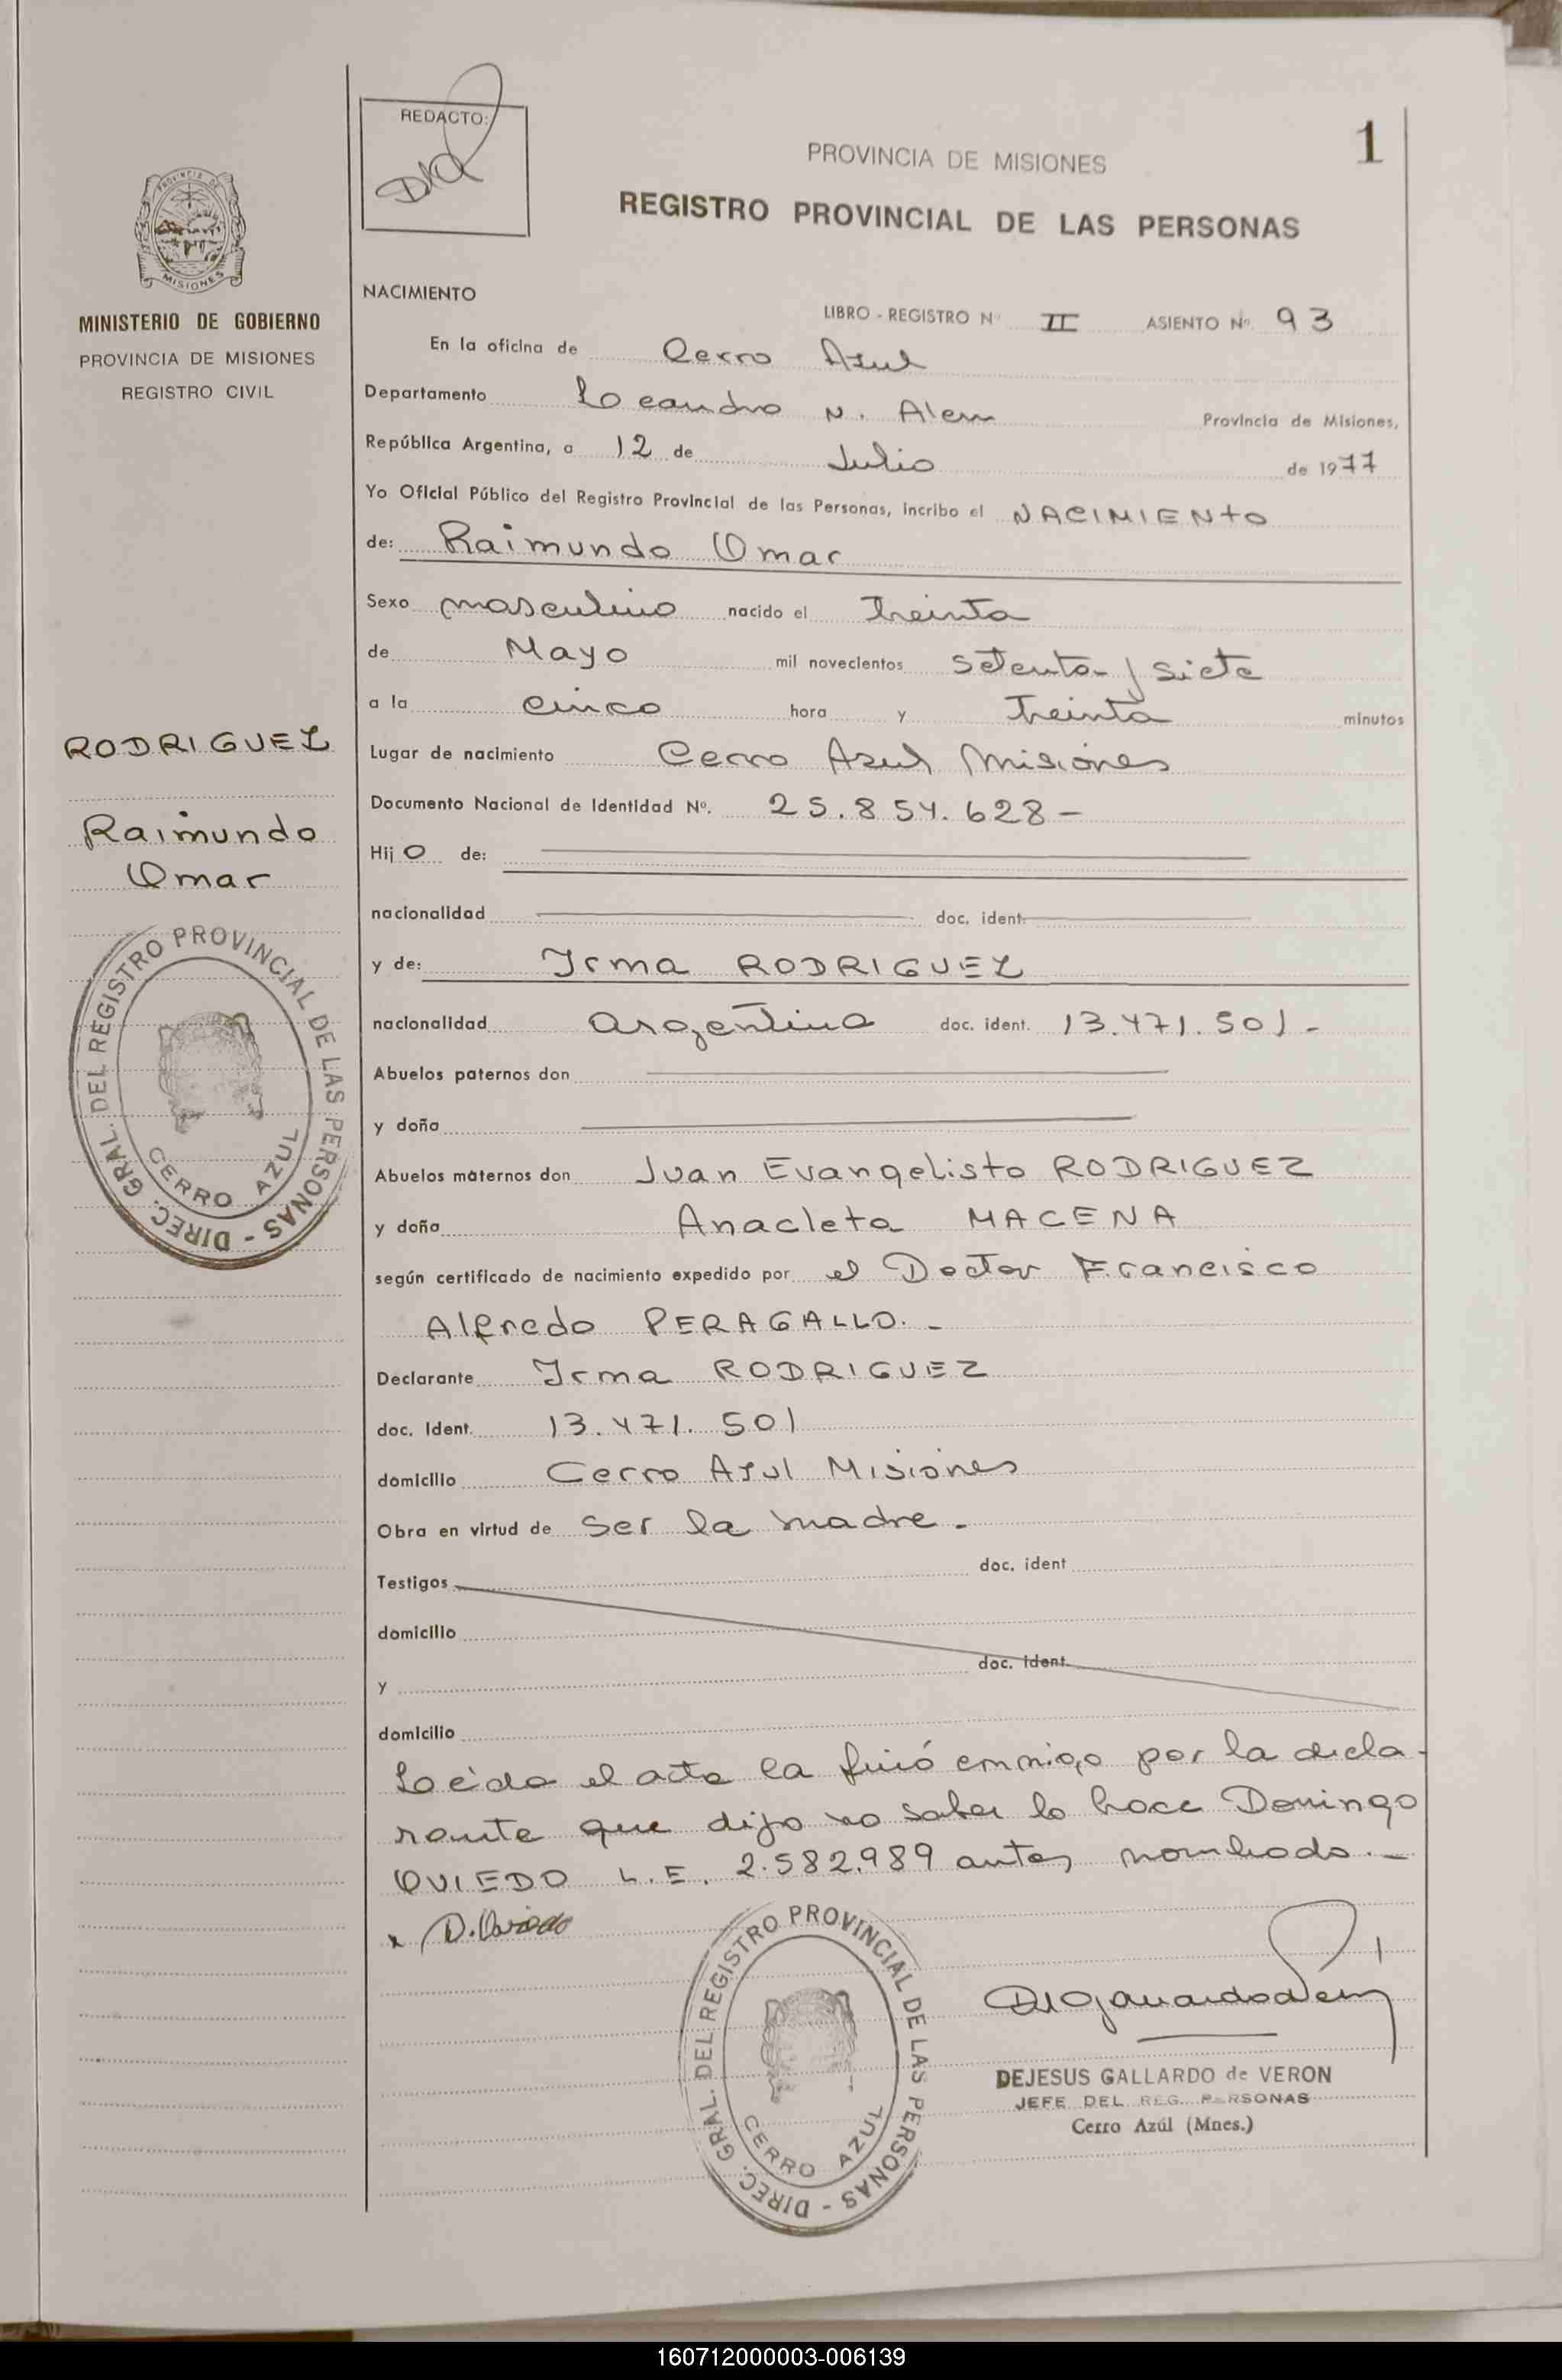 REDACTO:
1
PROVINCIA DE MISIONES
REGISTRO PROVINCIAL DE LAS PERSONAS
PROVINCIA DE
MISIONES
MINISTERIO DE GOBIERNO
PROVINCIA DE MISIONES
REGISTRO CIVIL
NACIMIENTO
LIBRO - REGISTRO Nº II ASIENTO Nº 93
En la oficina de Cerro Azul
Departamento Leandro N. Alem Provincia de Misiones,
República Argentina, a 12 de Julio de 1977
Yo Oficial Público del Registro Provincial de las Personas, incribo el NACIMIENTO
de: Raimundo Omar
Sexo masculino nacido el treinta
de Mayo mil novecientos setenta y siete
a la cinco hora y treinta minutos
Lugar de nacimiento Cerro Azul Misiones
Documento Nacional de Identidad Nº. 25.854.628-
Hijo de:
nacionalidad doc. ident.
y de: Irma RODRIGUEZ
nacionalidad argentina doc. ident. 13.471.501-
Abuelos paternos don
y doña
Abuelos maternos don Juan Evangelisto RODRIGUEZ
y doña Anacleta MACENA
según certificado de nacimiento expedido por el Doctor Francisco
Alfredo PERAGALLO.-
Declarante Irma RODRIGUEZ
doc. Ident. 13.471.501
domicilio Cerro Azul Misiones
Obra en virtud de ser la madre.-
Testigos doc. ident
domicilio
y doc. ident.
domicilio
Leída el acta la firmó conmigo por la decla-
rante que dijo no saber lo hace Domingo
OVIEDO L.E. 2.582.989 antes nombrado.-
x D. Oviedo
RODRIGUEZ
Raimundo
Omar
DIREC. GRAL. DEL REGISTRO PROVINCIAL DE LAS PERSONAS -
CERRO AZUL
DIREC. GRAL. DEL REGISTRO PROVINCIAL DE LAS PERSONAS -
CERRO AZUL
DEJESUS GALLARDO de VERON
JEFE DEL REG. PERSONAS
Cerro Azúl (Mnes.)
160712000003-006139